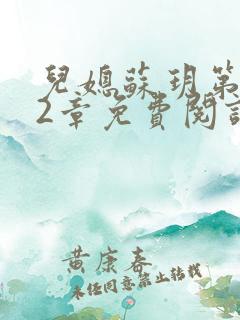 兒媳蘇玥第
2章免費閱讀
黃康春
未經同意禁止轉載